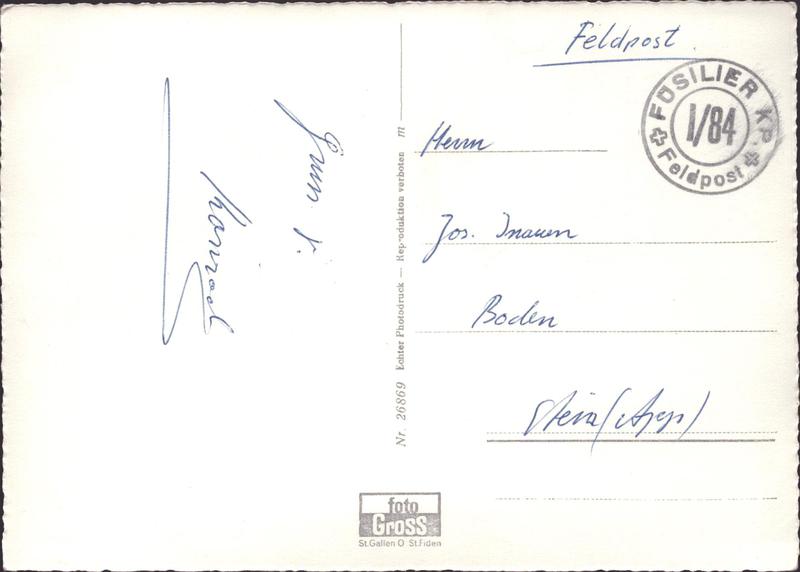 Feldpost
FÜSILIER KP.
I/84
Feldpost
Herrn
Jos. Inauen
Boden
Stein (App)
Konrad
Nr. 26869 Echter Photodruck — Reproduktion verboten m
foto
Gross
St.Gallen O St.Fiden